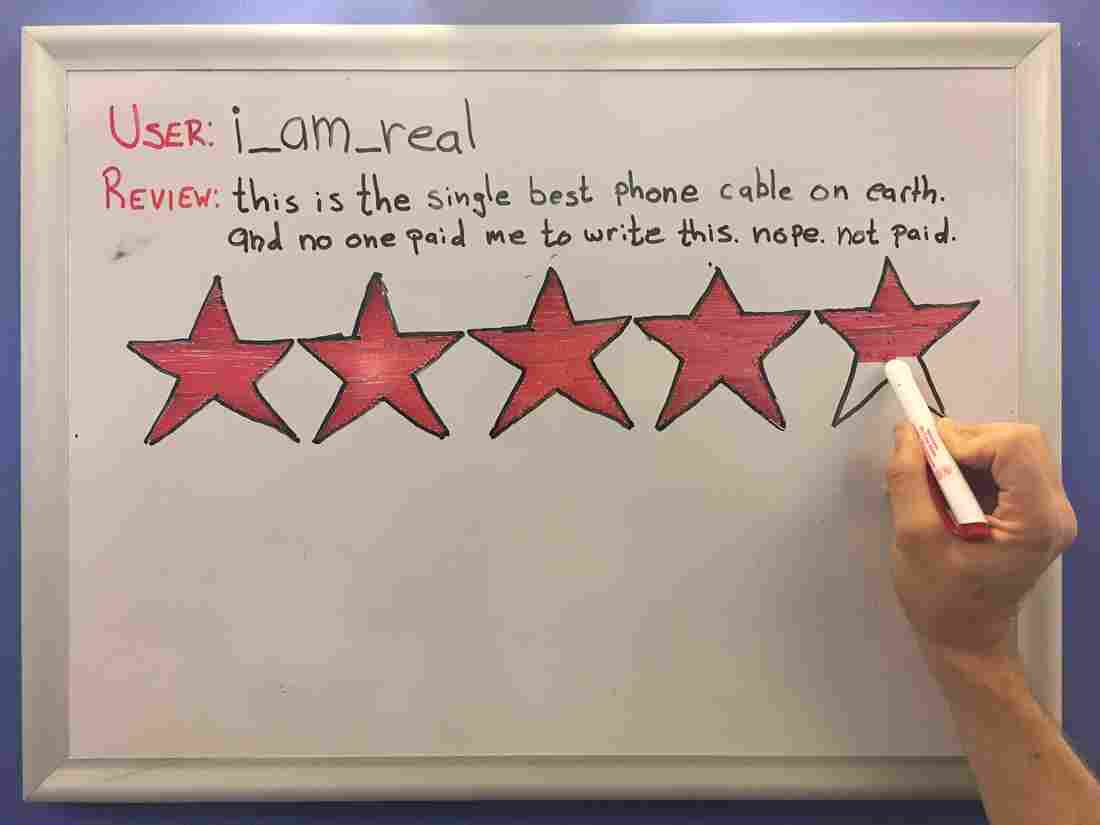 USER: i_am_real
REVIEW: this is the single best phone cable on earth.
and no one paid me to write this. nope. not paid.